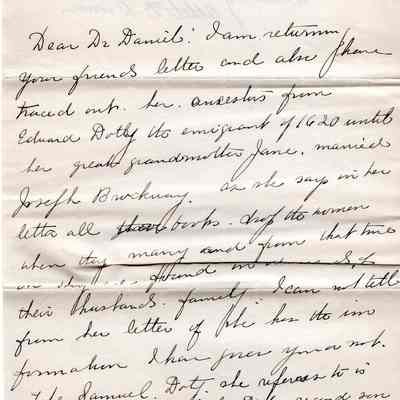 Dear Dr Daniels: I am returning
your friends letter and also I have
traced out her ancestors from
Edward Doty the emigrant of 1620 until
her great grandmother Jane, married
Joseph Brockway. as she says in her
letter all books drop the women
when they marry and from that time
on they found in
their husbands family. I can not tell
from her letter if she has the in
formation I have given you or not.
The Samuel Doty she referes to is
second son